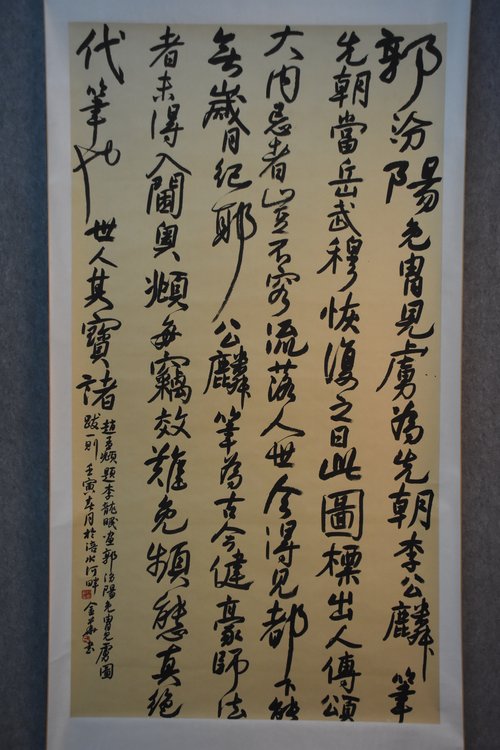 郭汾陽免胄見虜為先朝李公麟筆
先朝當岳武穆恢復之日此圖標出人傳頌
大内忌者豈不容流落人世今得見都下能
無歲月紀耶公麟筆為古今健豪師法
者未得入閫奧頫每竊效難免頻態真絕
代筆也世人其寶諸
趙孟頫題李龍眠畫郭汾陽免胄見虜圖
跋一則壬寅春月於洛水河畔金華書